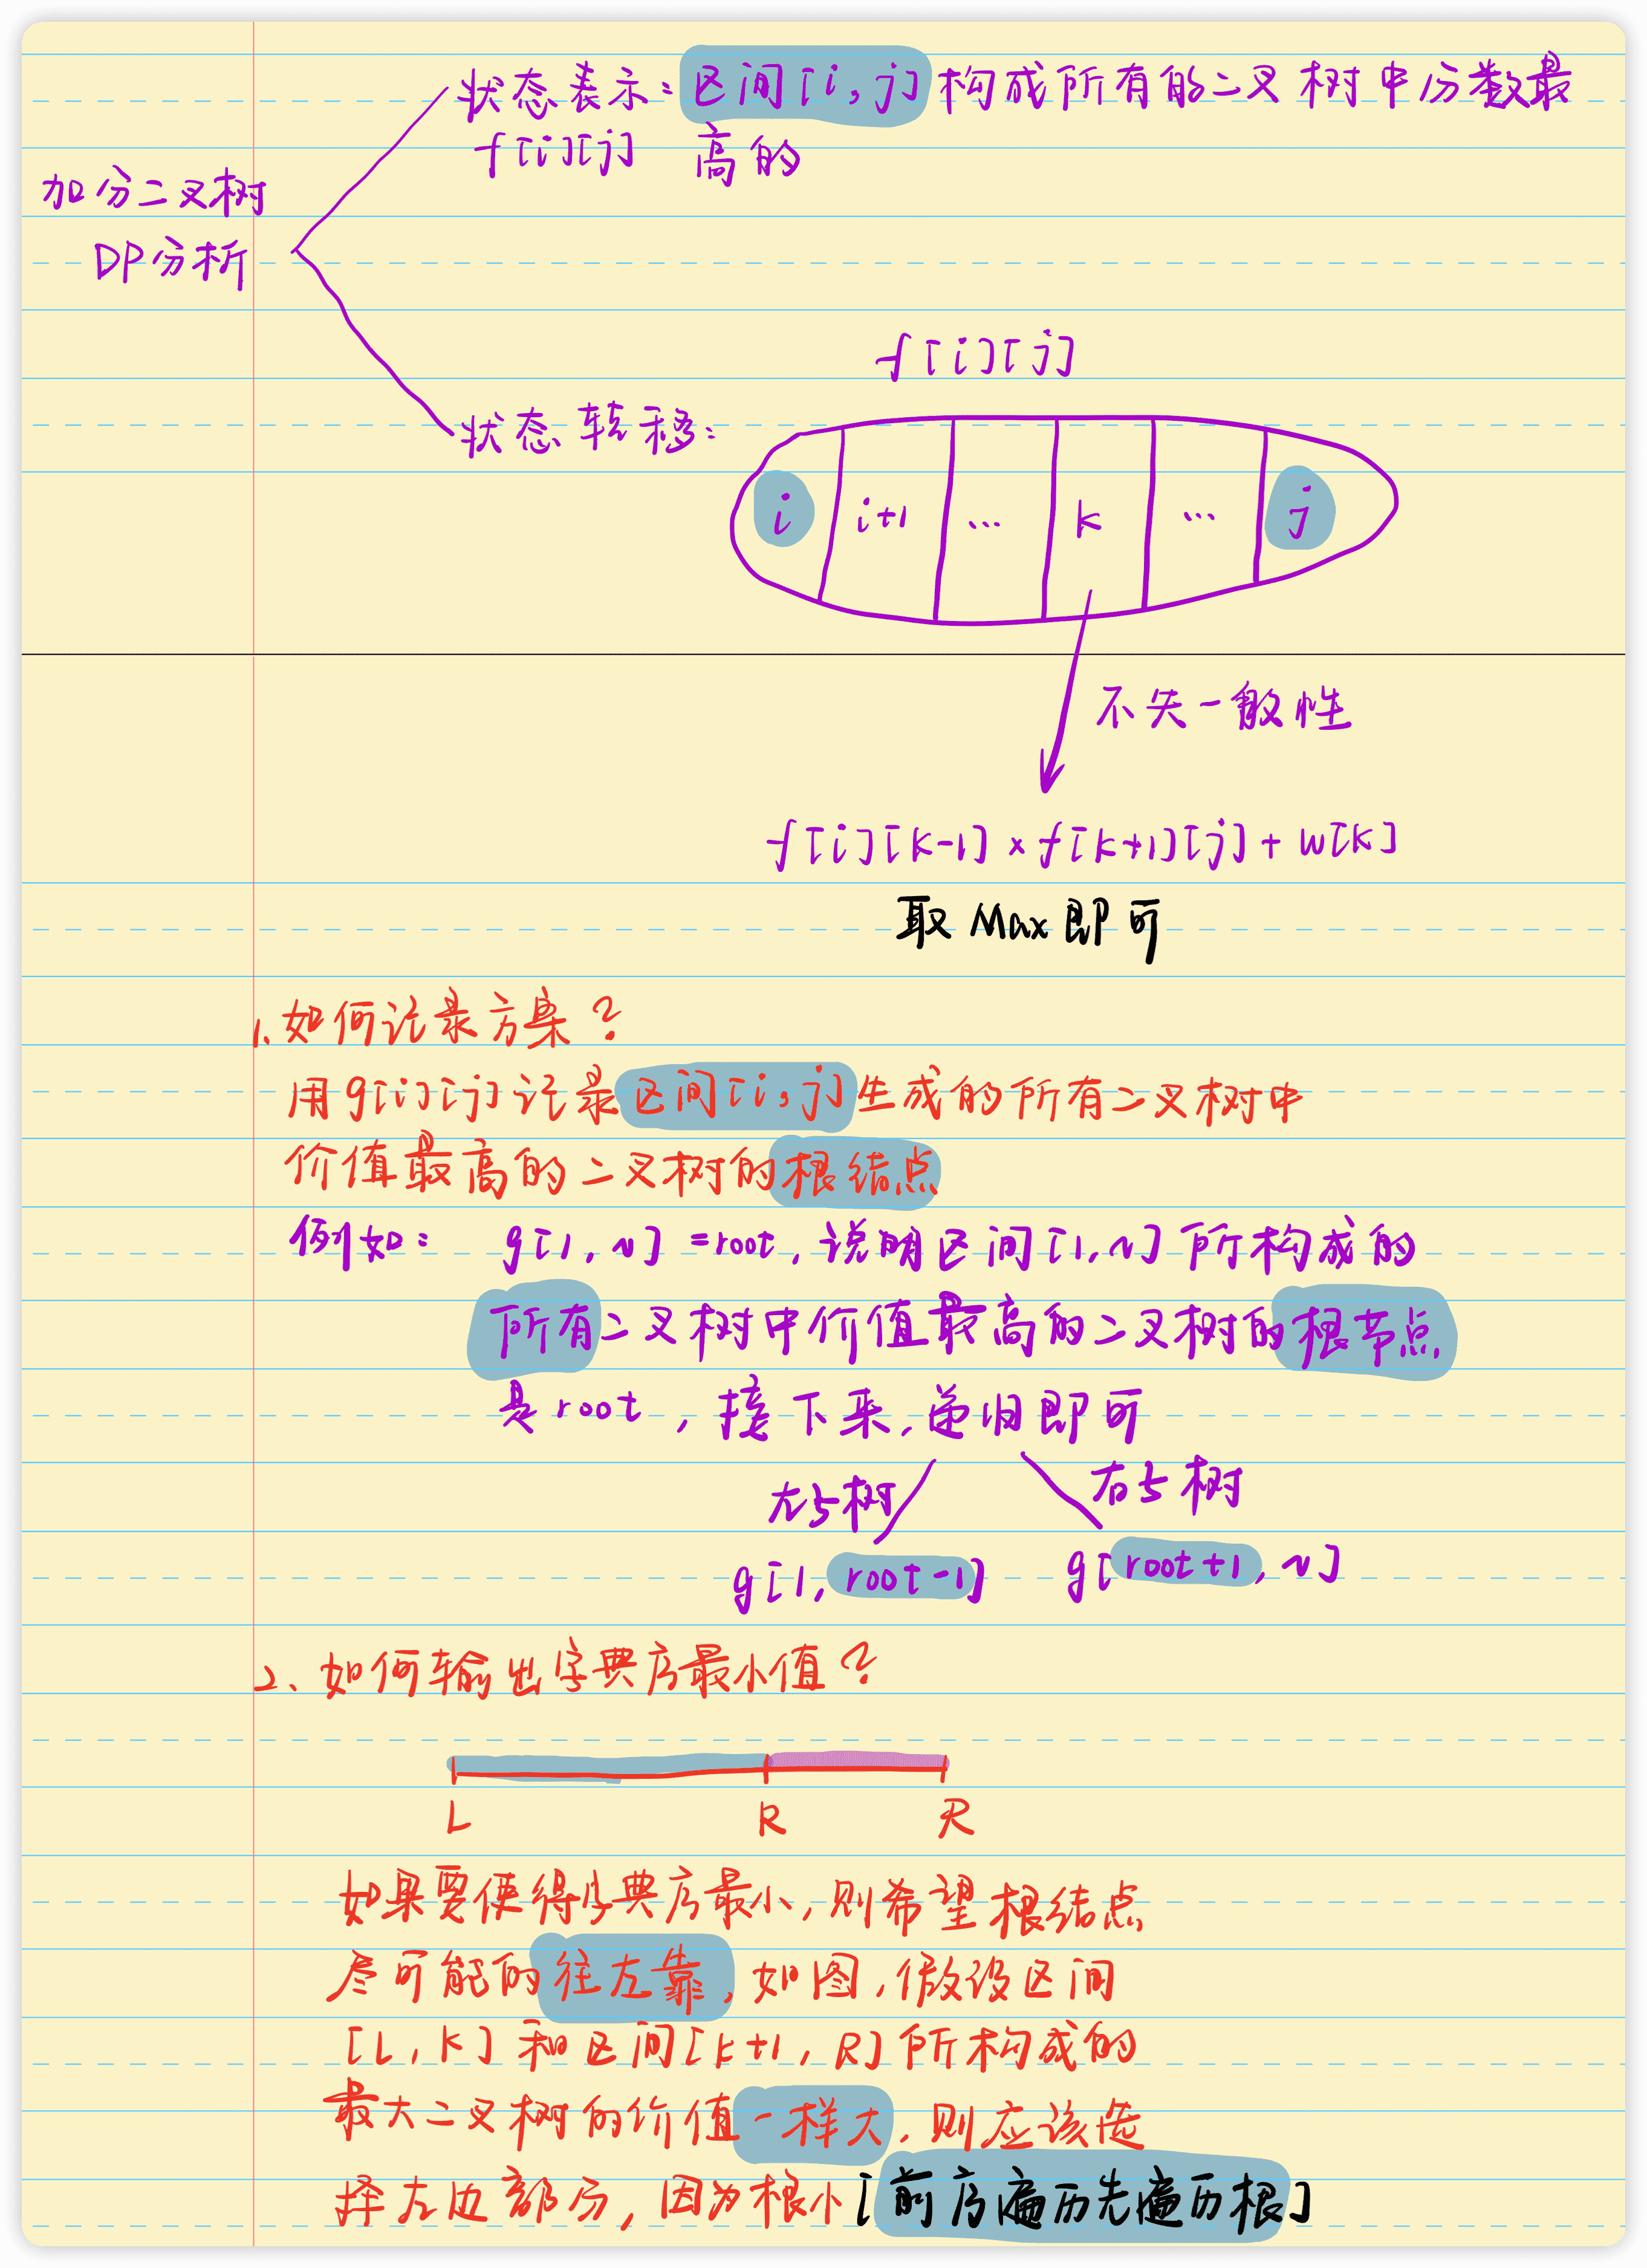 状态表示：区间[i,j]构成所有的二叉树中分数最
f[i][j] 高的
加分二叉树
DP分析
f[i][j]
状态转移：
i i+1 ... k ... j
不失一般性
f[i][k-1]×f[k+1][j]+w[k]
取Max即可
1.如何记录方案？
用g[i][j]记录区间[i,j]生成的所有二叉树中
价值最高的二叉树的根结点
例如： g[1,n]=root,说明区间[1,n]所构成的
所有二叉树中价值最高的二叉树的根节点
是root,接下来,递归即可
左子树 右子树
g[1,root-1] g[root+1,n]
2、如何输出字典序最小值？
L R R
如果要使得字典序最小,则希望根结点
尽可能的往左靠,如图,假设区间
[L,K]和区间[k+1,R]所构成的
最大二叉树的价值一样大,则应该选
择左边部分,因为根小[前序遍历先遍历根]